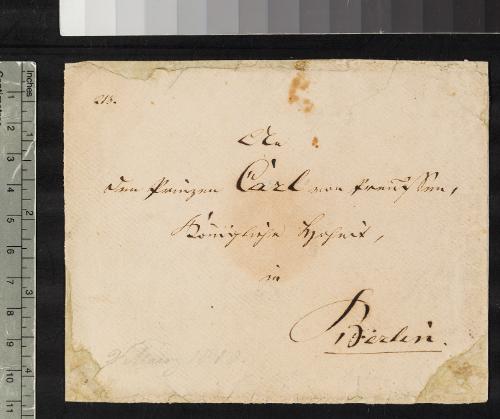 213.
An
den Prinzen Carl von Preußen,
Königliche Hoheit,
in
Berlin.
1848.
Inches
1
2
3
1
2
3
4
5
6
7
8
9
10
11